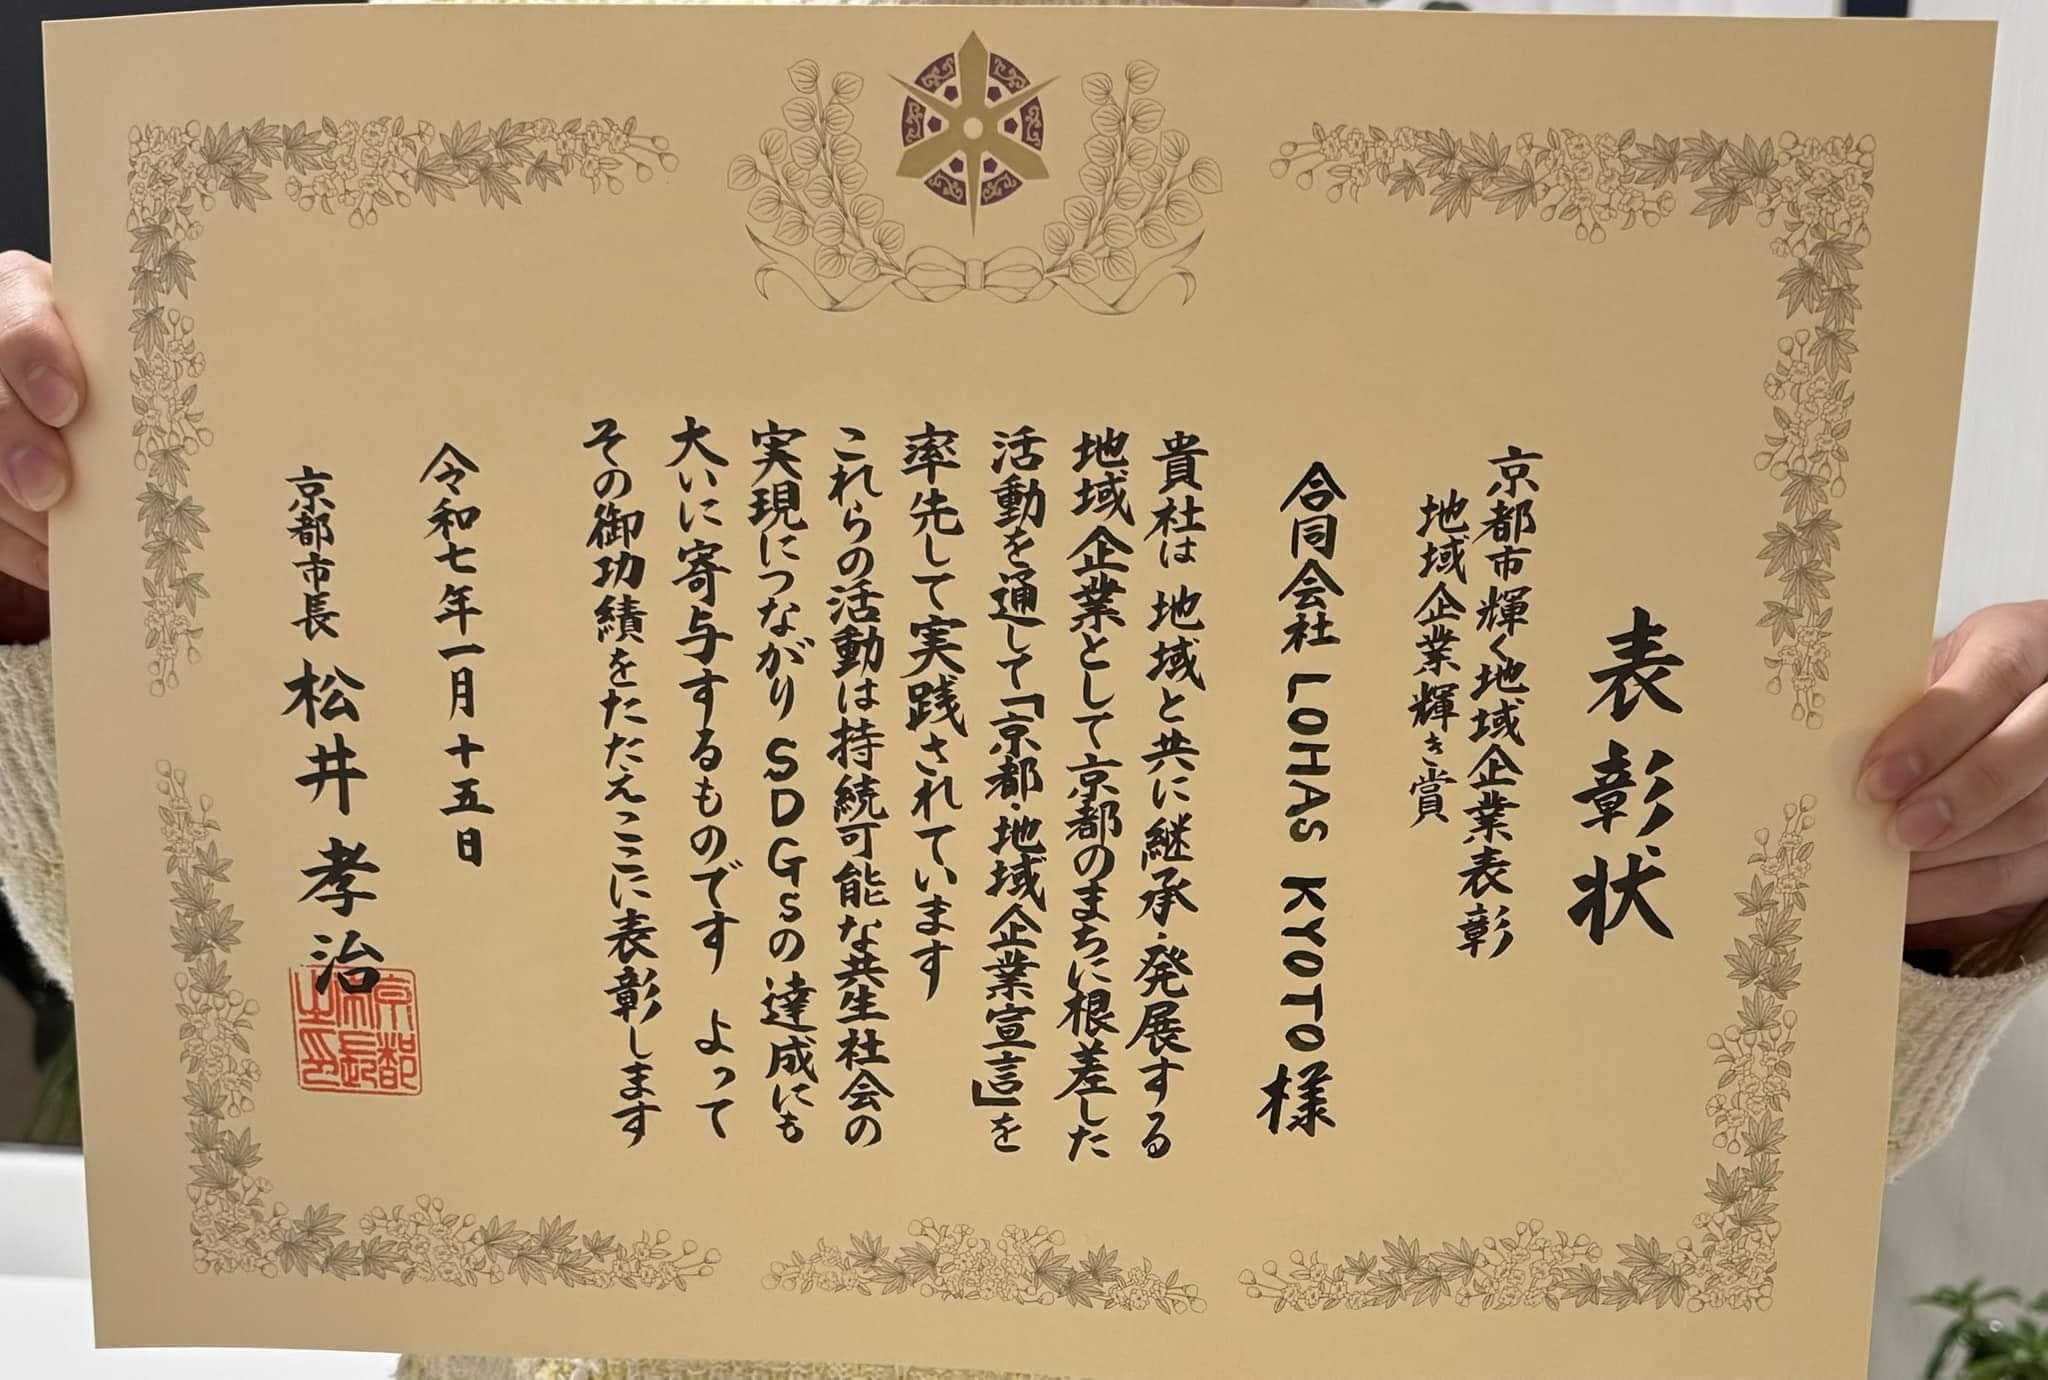 表彰状
京都市輝く地域企業表彰
地域企業輝き賞
合同会社 LOHAS KYOTO 様
貴社は 地域と共に継承・発展する
地域企業として京都のまちに根差した
活動を通して「京都・地域企業宣言」を
率先して実践されています
これらの活動は持続可能な共生社会の
実現につながり SDGsの達成にも
大いに寄与するものです よって
その御功績をたたえここに表彰します
令和七年一月十五日
京都市長 松井孝治
京都市長之印